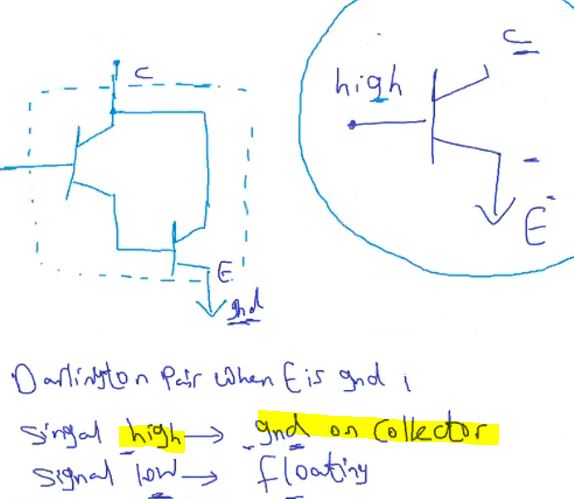 C
high
C
E
E
gnd
Darlington Pair when E is gnd,
Singal high → gnd on collector
Signal low → floating